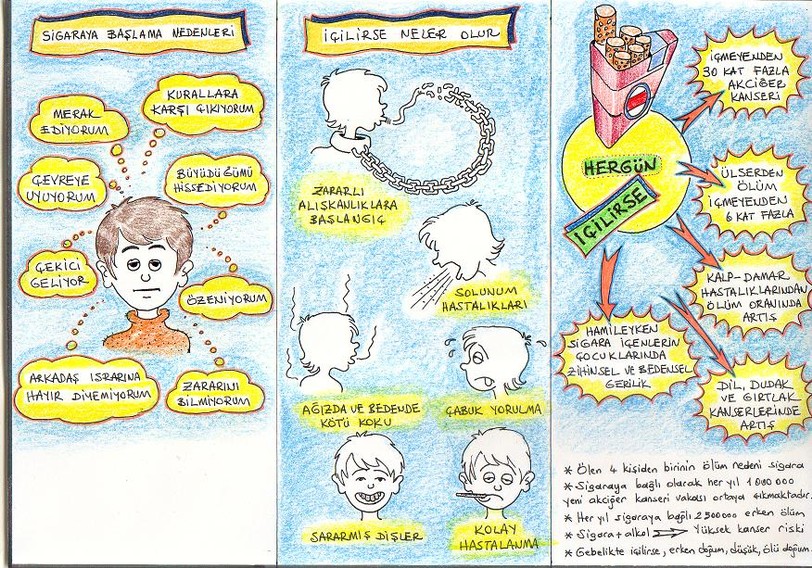 SİGARAYA BAŞLAMA NEDENLERİ
MERAK
EDİYORUM
KURALLARA
KARŞI ÇIKIYORUM
ÇEVREYE
UYUYORUM
BÜYÜDÜĞÜMÜ
HİSSEDİYORUM
ÇEKİCİ
GELİYOR
ÖZENİYORUM
ARKADAŞ ISRARINA
HAYIR DİYEMİYORUM
ZARARINI
BİLMİYORUM
İÇİLİRSE NELER OLUR
ZARARLI
ALIŞKANLIKLARA
BAŞLANGIÇ
SOLUNUM
HASTALIKLARI
AĞIZDA VE BEDENDE
KÖTÜ KOKU
ÇABUK YORULMA
SARARMIŞ DİŞLER
KOLAY
HASTALANMA
HERGÜN
İÇİLİRSE
İÇMEYENDEN
30 KAT FAZLA
AKCİĞER
KANSERİ
ÜLSERDEN
ÖLÜM
İÇMEYENDEN
6 KAT FAZLA
KALP-DAMAR
HASTALIKLARINDAN
ÖLÜM ORANINDA
ARTIŞ
HAMİLEYKEN
SİGARA İÇENLERİN
ÇOCUKLARINDA
ZİHİNSEL VE BEDENSEL
GERİLİK
DİL, DUDAK
VE GIRTLAK
KANSERLERİNDE
ARTIŞ
* Ölen 4 kişiden birinin ölüm nedeni sigara
* Sigaraya bağlı olarak her yıl 1000000
yeni akciğer kanseri vakası ortaya çıkmaktadır.
* Her yıl sigaraya bağlı 2500000 erken ölüm
* Sigara + alkol → Yüksek kanser riski
* Gebelikte içilirse, erken doğum, düşük, ölü doğum